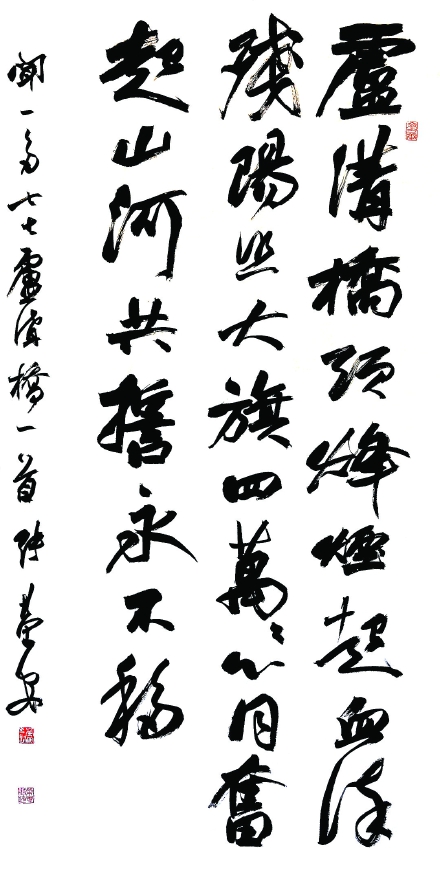 盧溝橋頭烽煙起血染
殘陽照大旗四萬々心同奮
起山河共誓永不移
聞一多七七盧溝橋一首